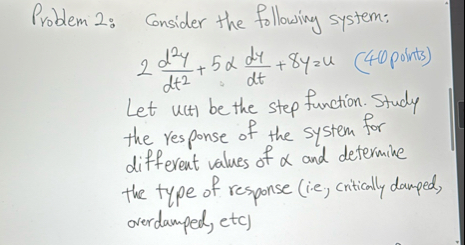 Problem 2: Consider the following system:
2 d²y/dt² + 5α dy/dt + 8y = u (40 points)
Let u(t) be the step function. Study
the response of the system for
different values of α and determine
the type of response (i.e., critically damped,
overdamped, etc)